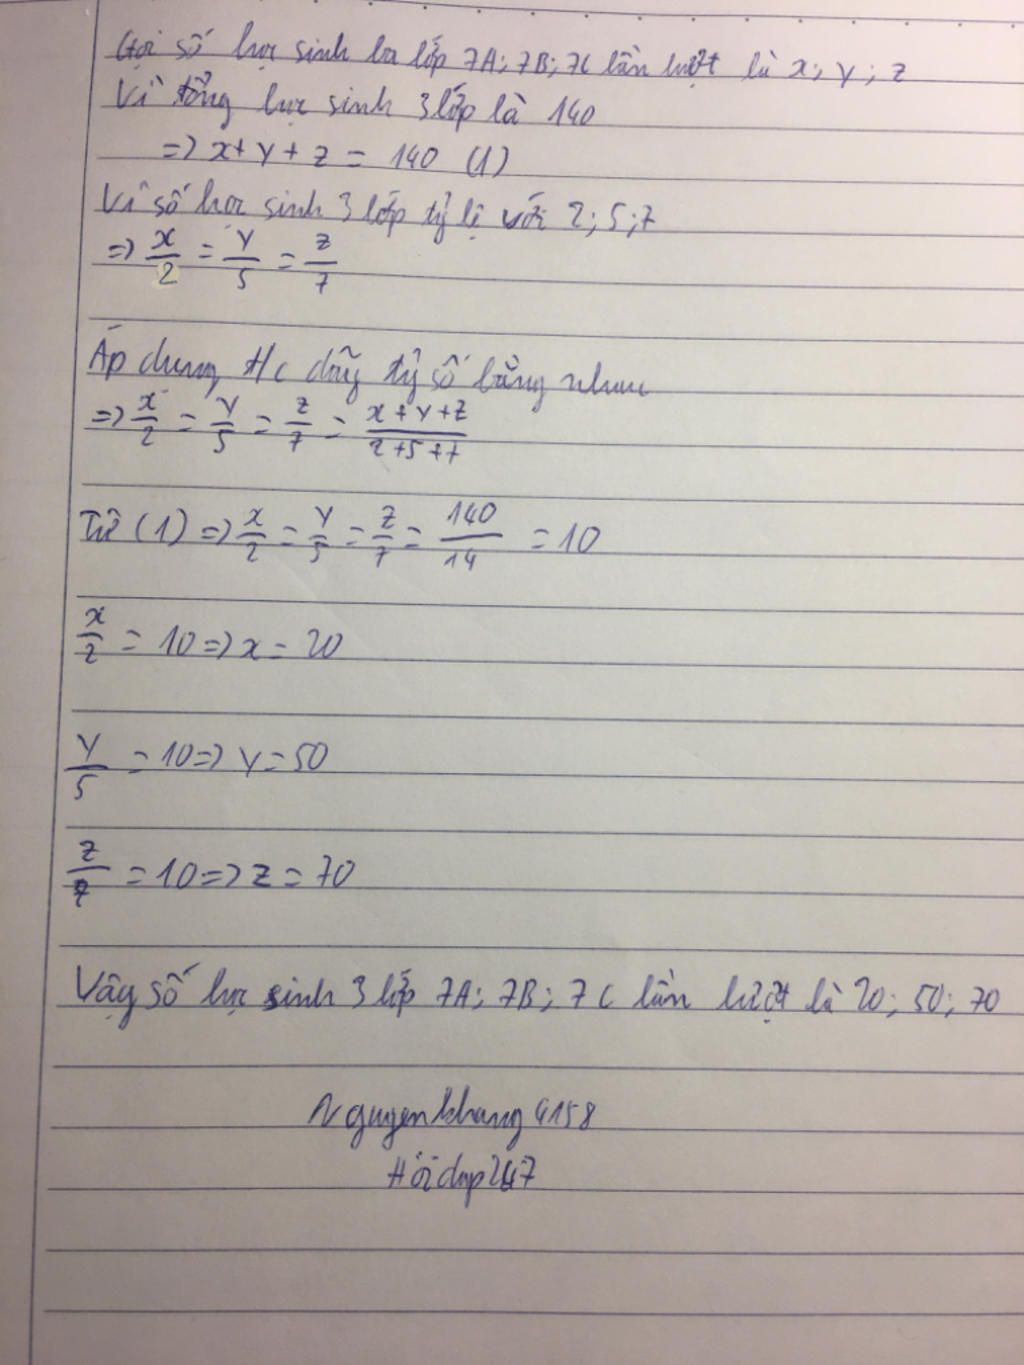 Gọi số học sinh ba lớp 7A; 7B; 7C lần lượt là x; y; z
Vì tổng học sinh 3 lớp là 140
=> x + y + z = 140 (1)
Vì số học sinh 3 lớp tỷ lệ với 2; 5; 7
=> x/2 = y/5 = z/7
Áp dụng t/c dãy tỷ số bằng nhau
=> x/2 = y/5 = z/7 = (x + y + z)/(2 + 5 + 7)
Từ (1) => x/2 = y/5 = z/7 = 140/14 = 10
x/2 = 10 => x = 20
y/5 = 10 => y = 50
z/7 = 10 => z = 70
Vậy số học sinh 3 lớp 7A; 7B; 7C lần lượt là 20; 50; 70
Nguyenkhang4158
Hỏidap247